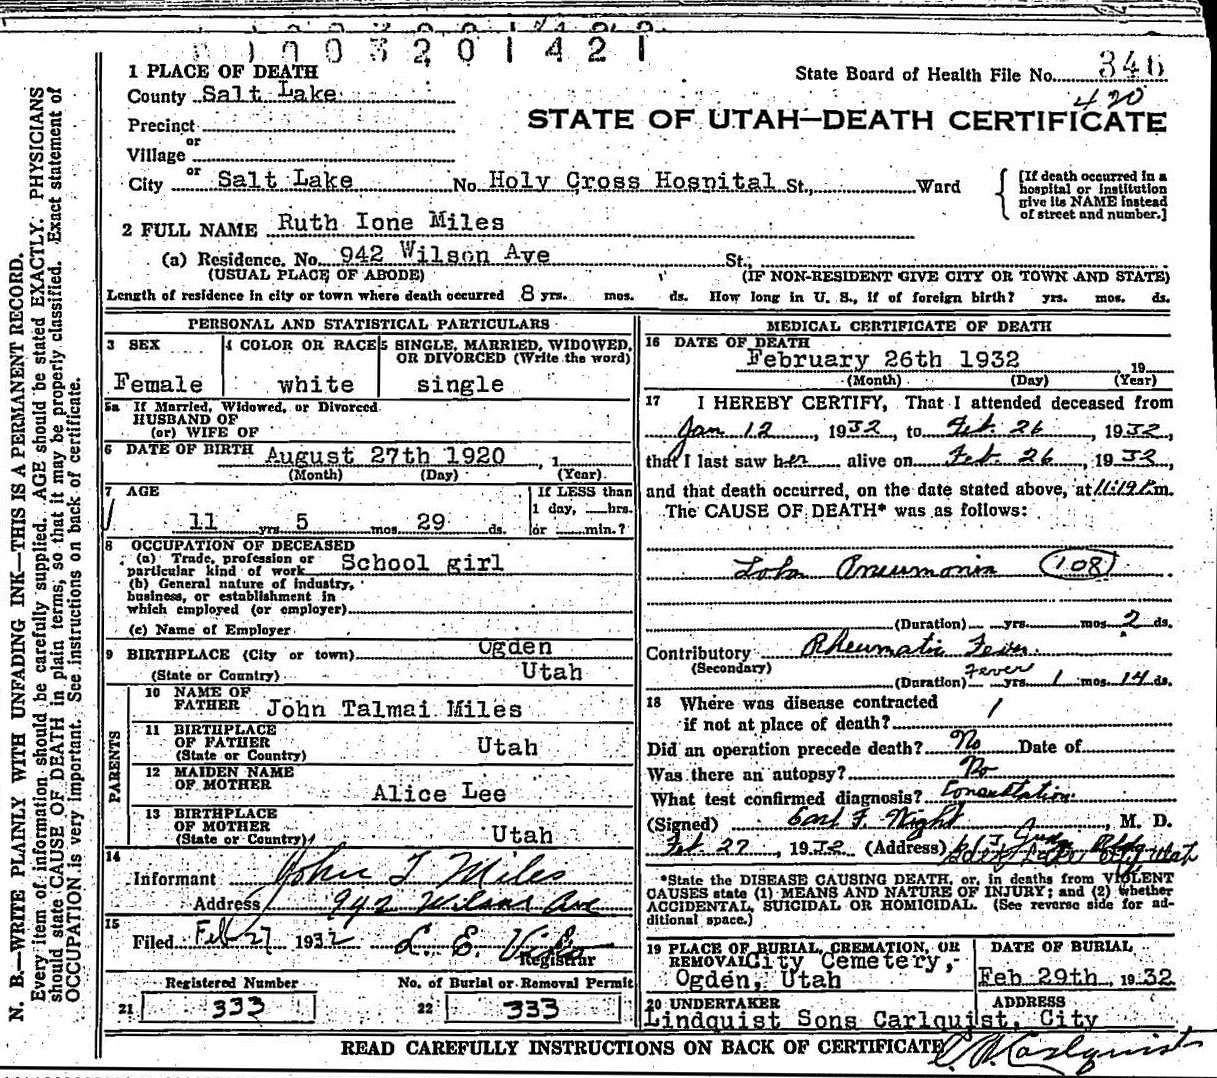 1003201421
1 PLACE OF DEATH
State Board of Health File No. 346
County Salt Lake
420
STATE OF UTAH—DEATH CERTIFICATE
Precinct
or
Village
or
City Salt Lake No. Holy Cross Hospital St., Ward
[If death occurred in a hospital or institution give its NAME instead of street and number.]
2 FULL NAME Ruth Ione Miles
(a) Residence. No. 942 Wilson Ave St.,
(USUAL PLACE OF ABODE) (IF NON-RESIDENT GIVE CITY OR TOWN AND STATE)
Length of residence in city or town where death occurred 8 yrs. mos. ds. How long in U. S., if of foreign birth? yrs. mos. ds.
PERSONAL AND STATISTICAL PARTICULARS
3 SEX 4 COLOR OR RACE 5 SINGLE, MARRIED, WIDOWED,
OR DIVORCED (Write the word)
Female white single
5a If Married, Widowed, or Divorced
HUSBAND OF
(or) WIFE OF
6 DATE OF BIRTH August 27th 1920, 1
(Month) (Day) (Year)
7 AGE If LESS than
1 day, hrs.
11 yrs. 5 mos. 29 ds. or min.?
8 OCCUPATION OF DECEASED
(a) Trade, profession or
particular kind of work School girl
(b) General nature of industry,
business, or establishment in
which employed (or employer)
(c) Name of Employer
9 BIRTHPLACE (City or town) Ogden
(State or Country) Utah
PARENTS
10 NAME OF
FATHER John Talmai Miles
11 BIRTHPLACE
OF FATHER
(State or Country) Utah
12 MAIDEN NAME
OF MOTHER Alice Lee
13 BIRTHPLACE
OF MOTHER
(State or Country) Utah
14
Informant John T Miles
Address 942 Wilson Ave
15
Filed Feb 27 1932 L. E.
Registrar
Registered Number No. of Burial or Removal Permit
21 333 22 333
MEDICAL CERTIFICATE OF DEATH
16 DATE OF DEATH
February 26th 1932 19
(Month) (Day) (Year)
17 I HEREBY CERTIFY, That I attended deceased from
Jan 12, 1932, to Feb. 26, 1932,
that I last saw her alive on Feb. 26, 1932,
and that death occurred, on the date stated above, at 11:19 P.m.
The CAUSE OF DEATH* was as follows:
Lobar Pneumonia 108
(Duration) yrs. mos. 2 ds.
Contributory Rheumatic Fever.
(Secondary) Fever
(Duration) yrs. 1 mos. 14 ds.
18 Where was disease contracted
if not at place of death?
Did an operation precede death? No Date of
Was there an autopsy? No
What test confirmed diagnosis? Consultation
(Signed) Earl F. Wight, M. D.
Feb 27, 1932 (Address) Judge Bldg
Salt Lake City Utah
*State the DISEASE CAUSING DEATH, or, in deaths from VIOLENT
CAUSES state (1) MEANS AND NATURE OF INJURY; and (2) whether
ACCIDENTAL, SUICIDAL OR HOMICIDAL. (See reverse side for ad-
ditional space.)
19 PLACE OF BURIAL, CREMATION, OR
REMOVAL City Cemetery,
Ogden, Utah
DATE OF BURIAL
Feb 29th, 1932
20 UNDERTAKER ADDRESS
Lindquist Sons Carlquist, City
READ CAREFULLY INSTRUCTIONS ON BACK OF CERTIFICATE
Carlquist
N. B.—WRITE PLAINLY WITH UNFADING INK—THIS IS A PERMANENT RECORD.
Every item of information should be carefully supplied. AGE should be stated EXACTLY. PHYSICIANS
should state CAUSE OF DEATH in plain terms, so that it may be properly classified. Exact statement of
OCCUPATION is very important. See instructions on back of certificate.